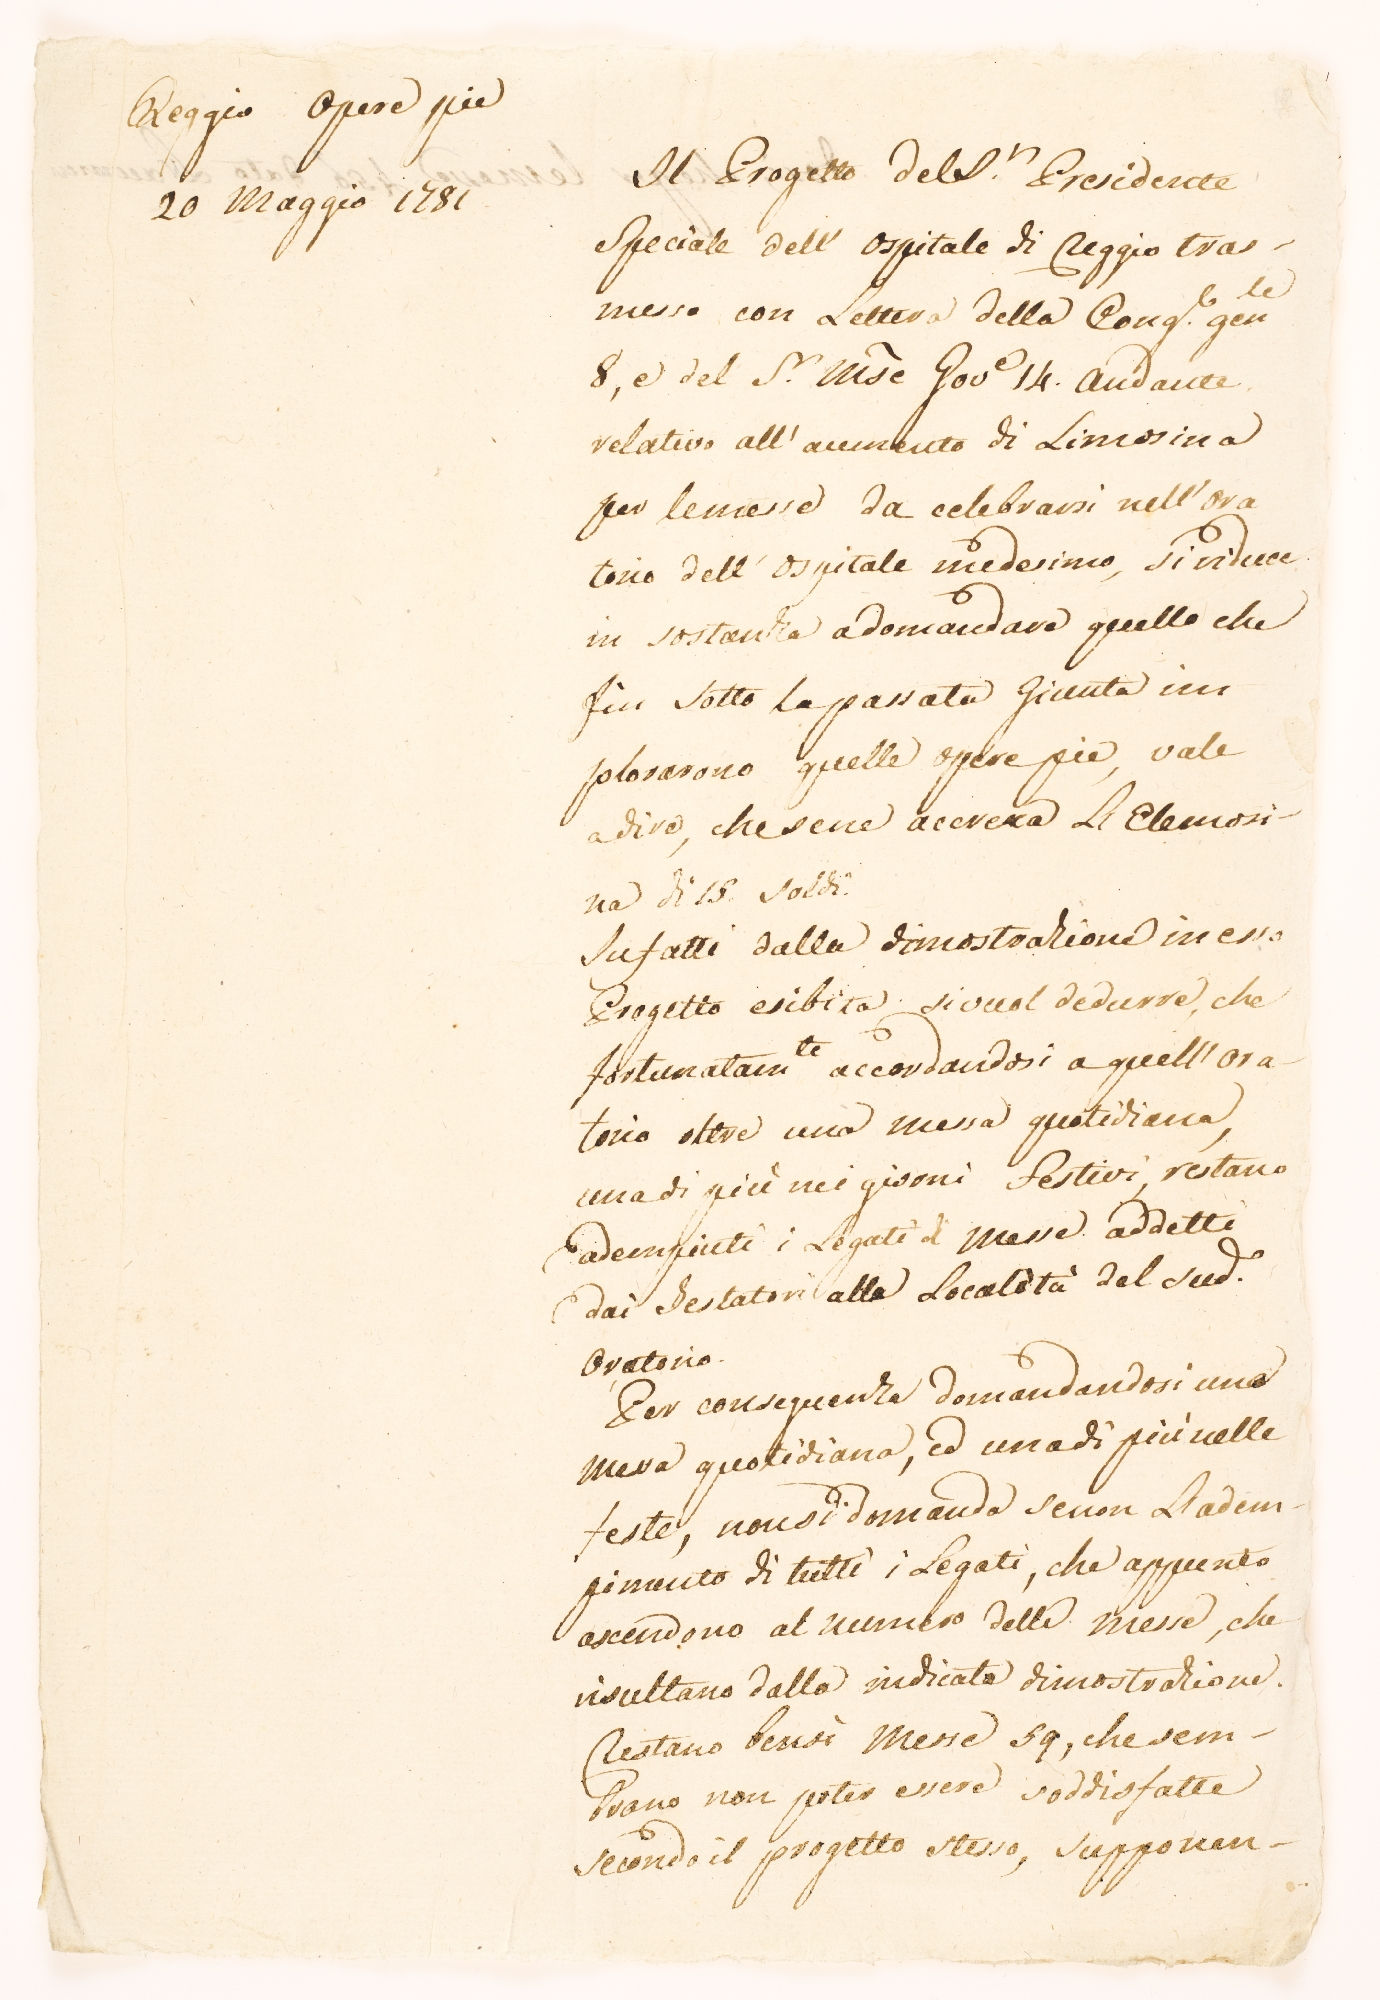 Reggio Opere pie
20 Maggio 1781
Il Progetto del S.r Presidente
Speciale dell' Ospitale di Reggio tras-
messo con Lettera della Cong.e gen le
8, e del S.r Mse Gov.e 14. andante
relativo all' aumento di Limosina
per le messe da celebrarsi nell' ora
torio dell' Ospitale medesimo, si riduce
in sostanza a domandare quello che
fin sotto la passata Giunta im
plorarono quelle opere pie, vale
a dire, che se ne accresca L'Elemosi-
na di 18. soldi.
Infatti dalla dimostrazione in esso
Progetto esibita si vuol dedurre, che
fortunatam te accordandosi a quell' ora-
torio oltre una messa quotidiana,
una di più nei giorni festivi, restano
adempiuti i Legati di Messe addetti
dai Testatori alla Località del sud.o
Oratorio.
Per conseguenza domandandosi una
Messa quotidiana, ed una di più nelle
feste, non si domanda se non L'adem-
pimento di tutti i Legati, che appunto
ascendono al numero delle messe, che
risultano dalla indicata dimostrazione.
Restano bensì Messe 59, che sem-
brano non poter essere soddisfatte
secondo il progetto stesso, supponen-